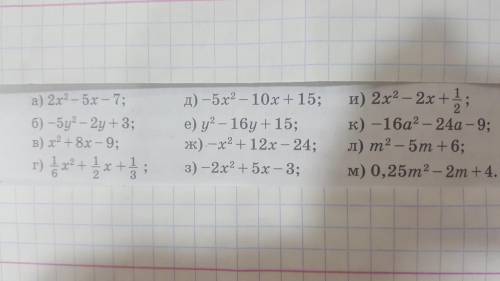 а) 2x² – 5x – 7;
б) –5y² – 2y + 3;
в) x² + 8x – 9;
г) 1/6 x² + 1/2 x + 1/3 ;
д) –5x² – 10x + 15;
е) y² – 16y + 15;
ж) –x² + 12x – 24;
з) –2x² + 5x – 3;
и) 2x² – 2x + 1/2 ;
к) –16a² – 24a – 9;
л) m² – 5m + 6;
м) 0,25m² – 2m + 4.